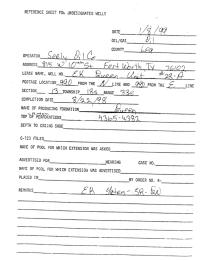 REFERENCE SHEET FOR UNDESIGNATED WELLS
DATE 1/8/99
OIL/GAS Oil
COUNTY Lea
OPERATOR Seely Oil Co
ADDRESS 815 W 10th St Fort Worth TX 76102
LEASE NAME, WELL NO. EK Queen Unit #
FOOTAGE LOCATION 990 FROM THE N LINE AND 990 FROM THE E LINE
SECTION 13 TOWNSHIP 18s RANGE 33e
COMPLETION DATE 8/22/98
NAME OF PRODUCING FORMATION Queen
TOP OF PERFORATIONS 4365-4392
DEPTH TO CASING SHOE
C-123 FILED
NAME OF POOL FOR WHICH EXTENSION WAS ASKED
ADVERTISED FOR HEARING CASE NO.
NAME OF POOL FOR WHICH EXTENSION WAS ADVERTISED
PLACED IN BY ORDER NO. R-
REMARKS EK Yates-SR-Qu